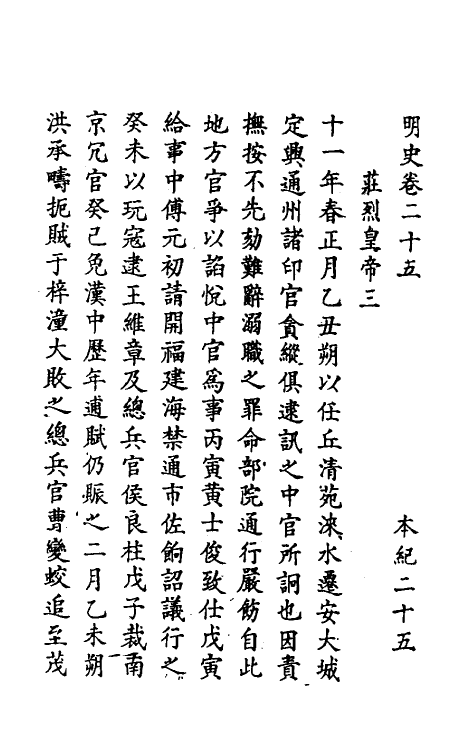 明史卷二十五 本紀二十五
莊烈皇帝三
十一年春正月乙丑朔以任丘清苑淶水遷安大城
定興通州諸印官貪縱俱逮訊之中官所詗也因責
撫按不先劾難辭溺職之罪命部院通行嚴飭自此
地方官爭以諂悅中官爲事丙寅黄士俊致仕戊寅
給事中傅元初請開福建海禁通市佐餉詔議行之
癸未以玩寇逮王維章及總兵官侯良柱戊子裁南
京冗官癸巳免漢中歷年逋賦仍賑之二月乙未朔
洪承疇扼賊于梓潼大敗之總兵官曹變蛟追至茂